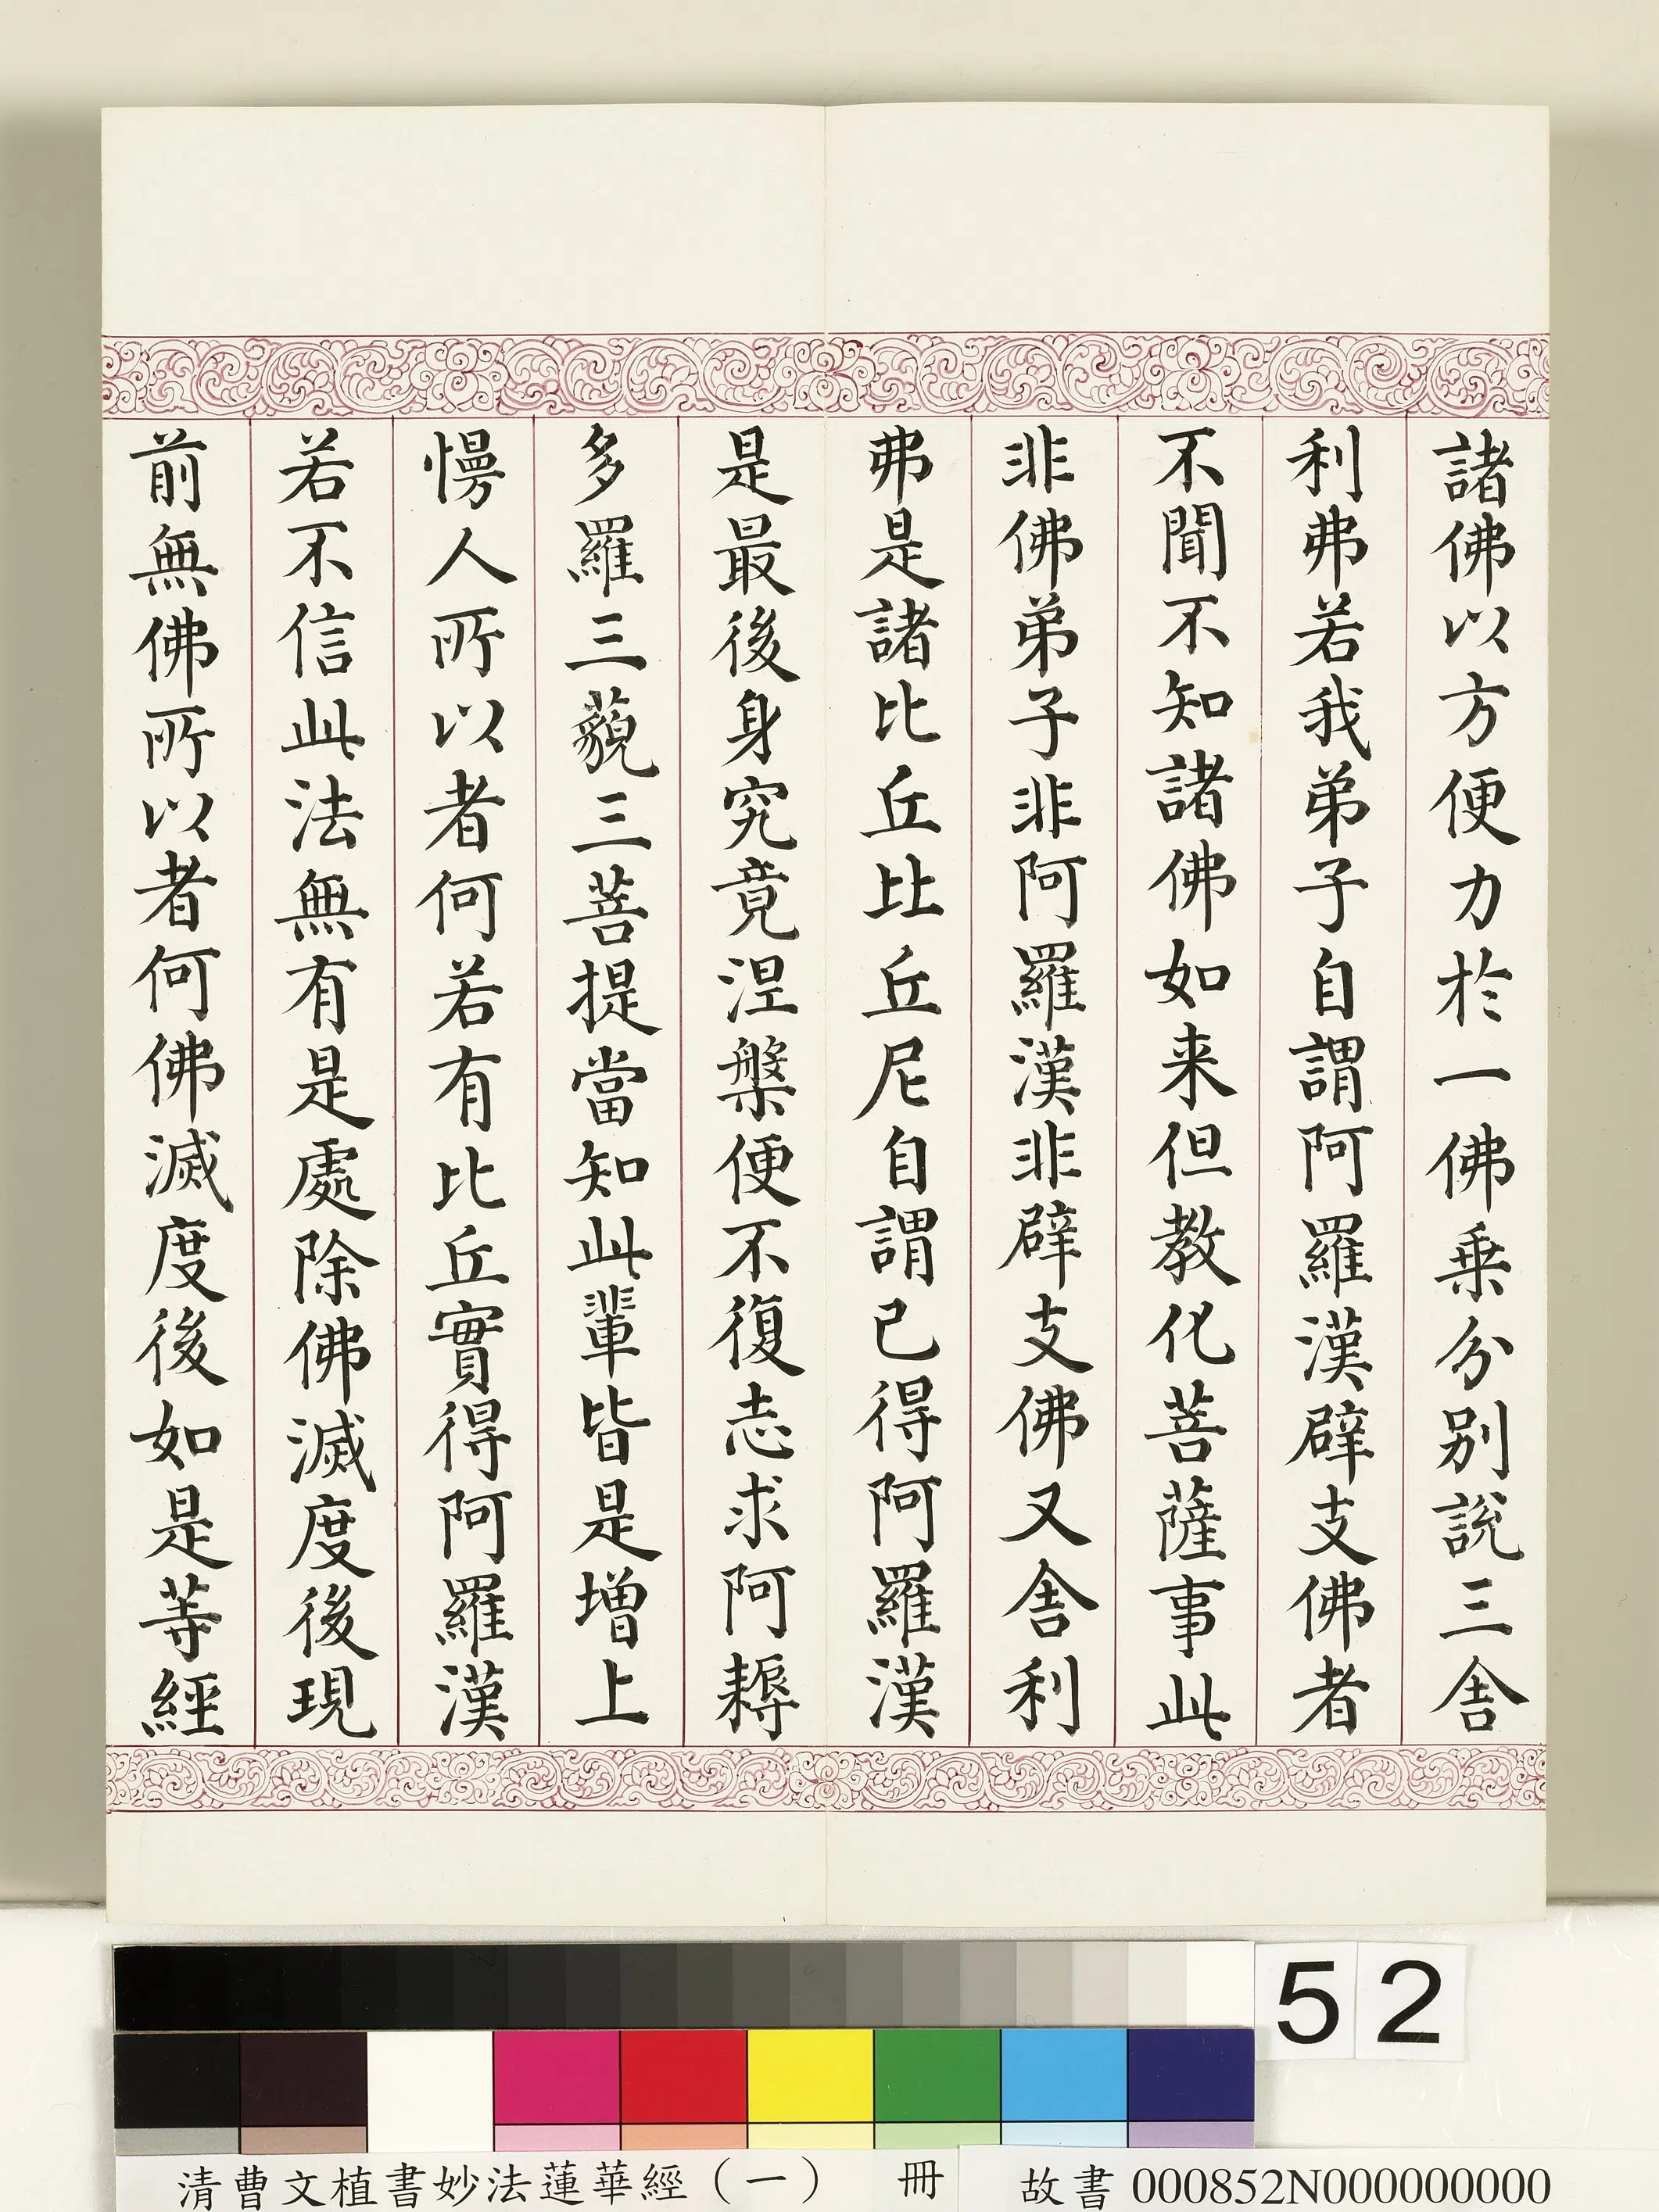 諸佛以方便力於一佛乗分别說三舎
利弗若我弟子自謂阿羅漢辟支佛者
不聞不知諸佛如来但教化菩薩事此
非佛弟子非阿羅漢非辟支佛又舎利
弗是諸比丘比丘尼自謂已得阿羅漢
是最後身究竟涅槃便不復志求阿耨
多羅三藐三菩提當知此輩皆是增上
慢人所以者何若有比丘實得阿羅漢
若不信此法無有是處除佛滅度後現
前無佛所以者何佛滅度後如是等經
52
清曹文植書妙法蓮華經（一） 冊 故書000852N000000000